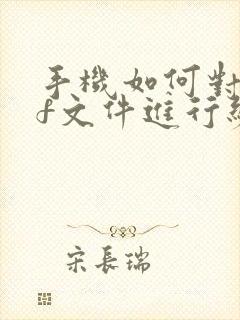 手機如何對
f文件進行
宋長瑞